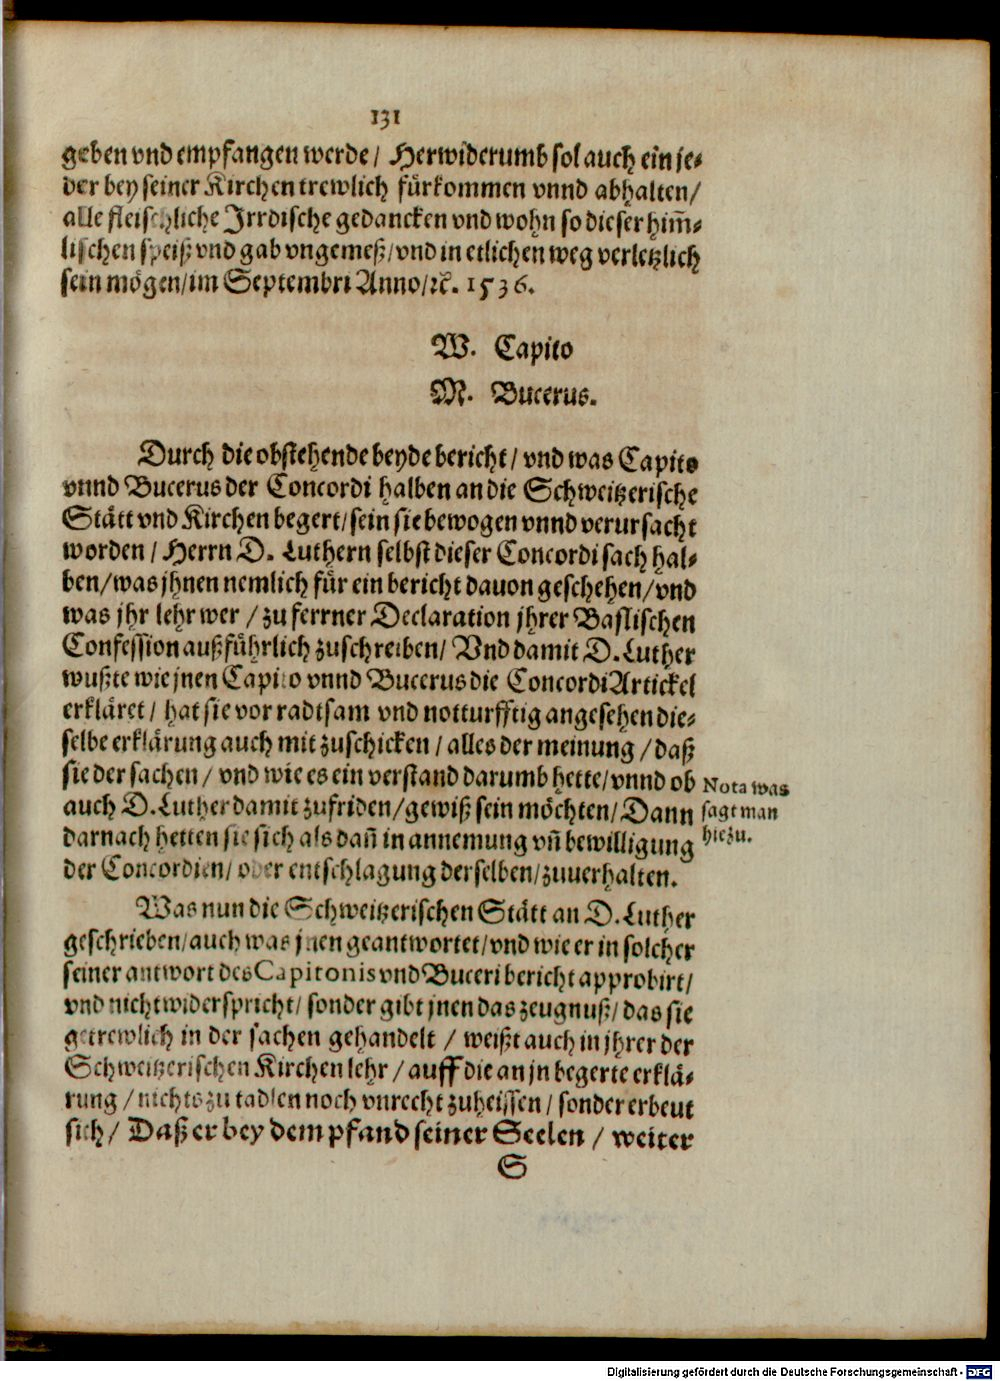 131
geben vnd empfangen werde / Herwiderumb sol auch ein je-
der bey seiner Kirchen trewlich fürkommen vnnd abhalten /
alle fleischliche Jrrdische gedancken vnd wohn so dieser him̃-
lischen speiß vnd gab vngemeß / vnd in etlichen weg verletzlich
sein mögen / im Septembri Anno / ꝛc. 1536.
W. Capito
M. Bucerus.
Durch die obstehende beyde bericht / vnd was Capito
vnnd Bucerus der Concordi halben an die Schweitzerische
Stätt vnd Kirchen begert / sein sie bewogen vnnd verursacht
worden / Herrn D. Luthern selbst dieser Concordi sach hal-
ben / was jhnen nemlich für ein bericht dauon geschehen / vnd
was jhr lehr wer / zu ferrner Declaration jhrer Baslischen
Confession außführlich zuschreiben / Vnd damit D. Luther
wußte wie jnen Capito vnnd Bucerus die Concordi Artickel
erkläret / hat sie vor radtsam vnd notturfftig angesehen die-
selbe erklärung auch mit zuschicken / alles der meinung / daß
sie der sachen / vnd wie es ein verstand darumb hette / vnnd ob
auch D. Luther damit zufriden / gewiß sein möchten / Dann
darnach hetten sie sich als dañ in annemung vñ bewilligung
der Concordien / oder entschlagung derselben / zuuerhalten.
Nota was
sagt man
hiezu.
Was nun die Schweitzerischen Stätt an D. Luther
geschrieben / auch was jnen geantwortet / vnd wie er in solcher
seiner antwort des Capitonis vnd Buceri bericht approbirt /
vnd nicht widerspricht / sonder gibt jnen das zeugnuß / das sie
getrewlich in der sachen gehandelt / weißt auch in jhrer der
Schweitzerischen Kirchen lehr / auff die an jn begerte erklä-
rung / nichts zu tadlen noch vnrecht zuheissen / sonder erbeut
sich / Daß er bey dem pfand seiner Seelen / weiter
S
Digitalisierung gefördert durch die Deutsche Forschungsgemeinschaft - DFG